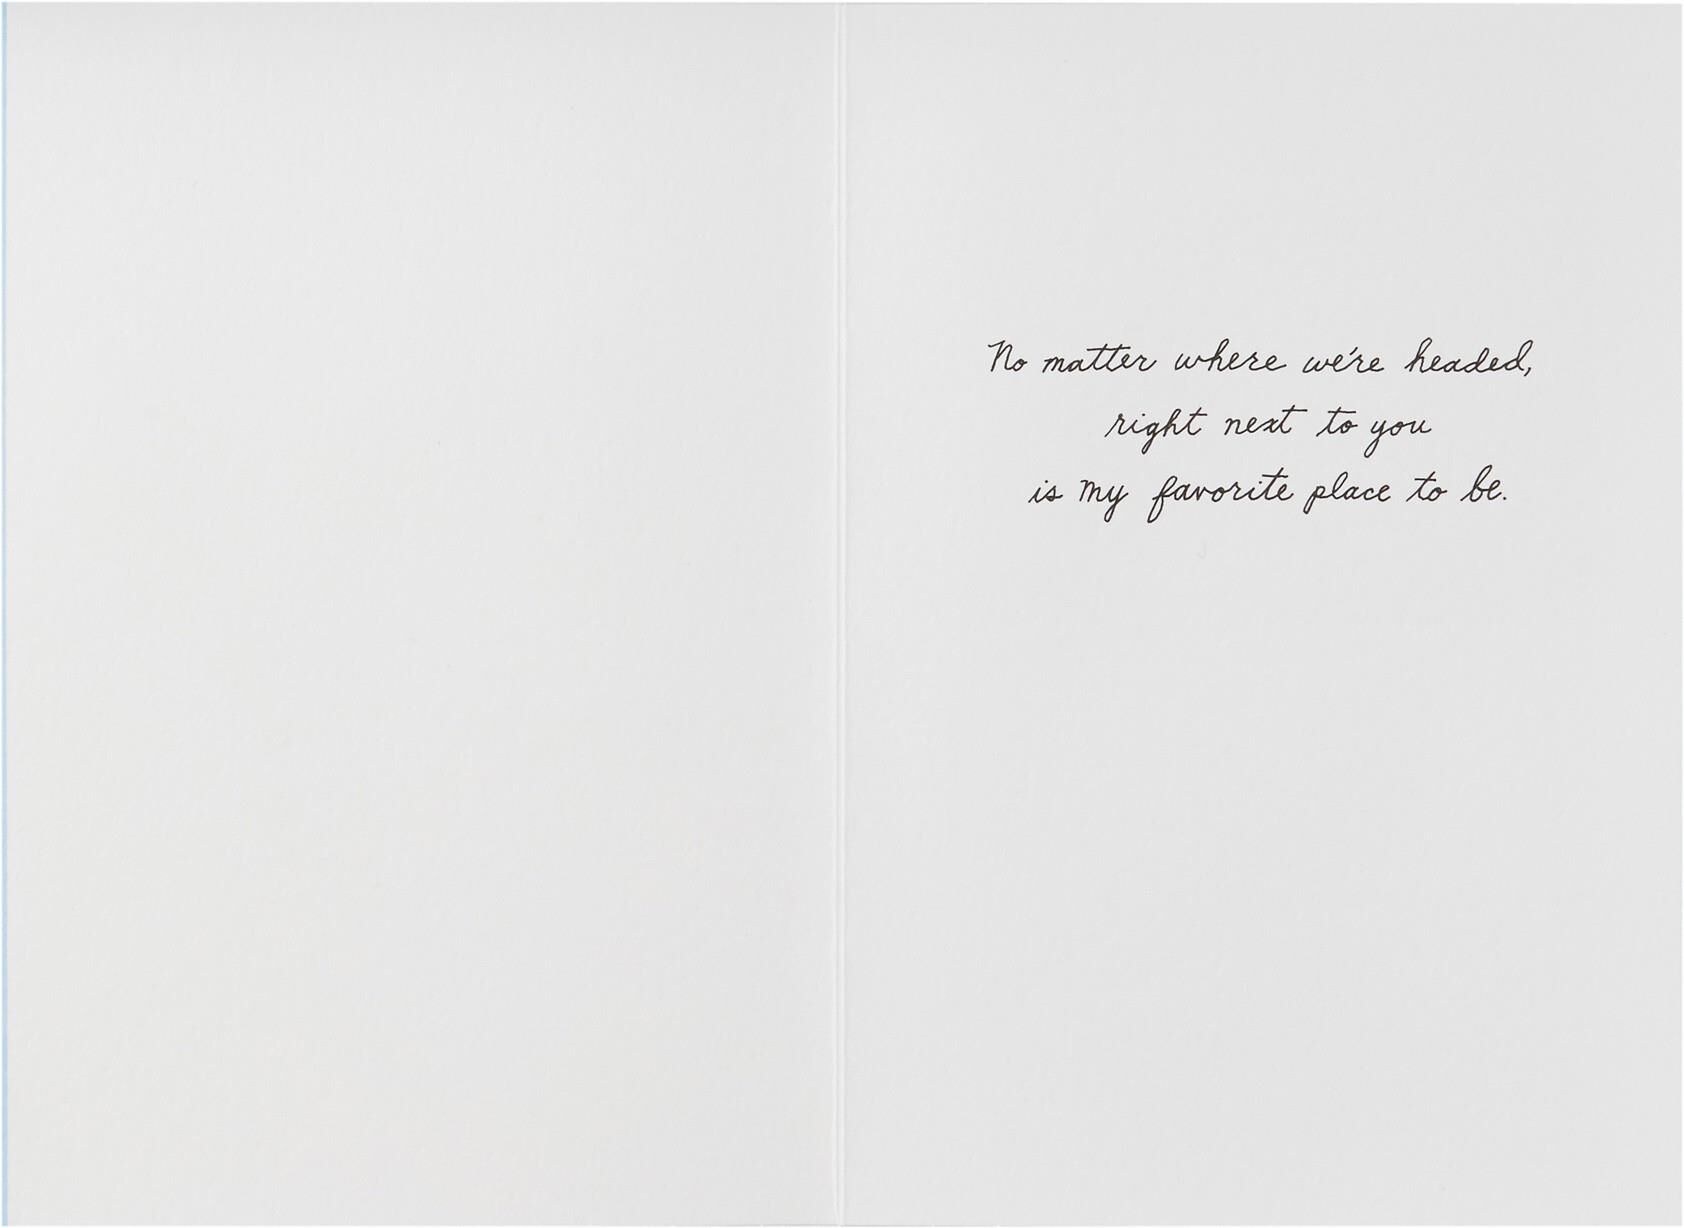 No matter where we're headed,
right next to you
is my favorite place to be.